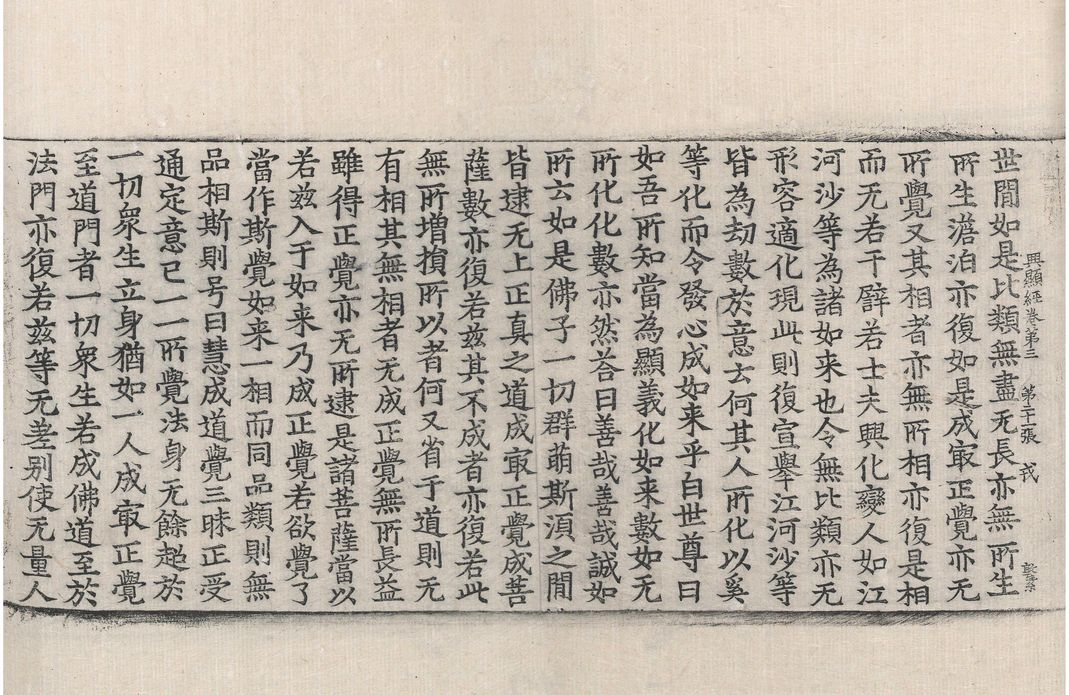 興顯經卷第三 張 戎
世閒如是比類無盡无長亦無所生
所生澹泊亦復如是成㝡正覺亦无
所覺又其相者亦無所相亦復是相
而无若干譬若士夫興化變人如江
河沙等為諸如来也令無比類亦无
形容適化現此則復宣舉江河沙等
皆為劫數於意云何其人所化以奚
等化而令發心成如来乎白世尊曰
如吾所知當為顯義化如来數如无
所化化數亦然荅曰善哉善哉誠如
所云如是佛子一切群萌斯湏之閒
皆逮无上正真之道成㝡正覺成菩
薩數亦復若兹其不成者亦復若此
無所增損所以者何又省于道則无
有相其無相者无成正覺無所長益
雖得正覺亦无所逮是諸菩薩當以
若兹入于如来乃成正覺若欲覺了
當作斯覺如来一相而同品類則無
品相斯則号曰慧成道覺三昧正受
通定意已一一所覺法身无餘起於
一切衆生立身猶如一人成㝡正覺
至道門者一切衆生若成佛道至於
法門亦復若兹等无差别使无量人